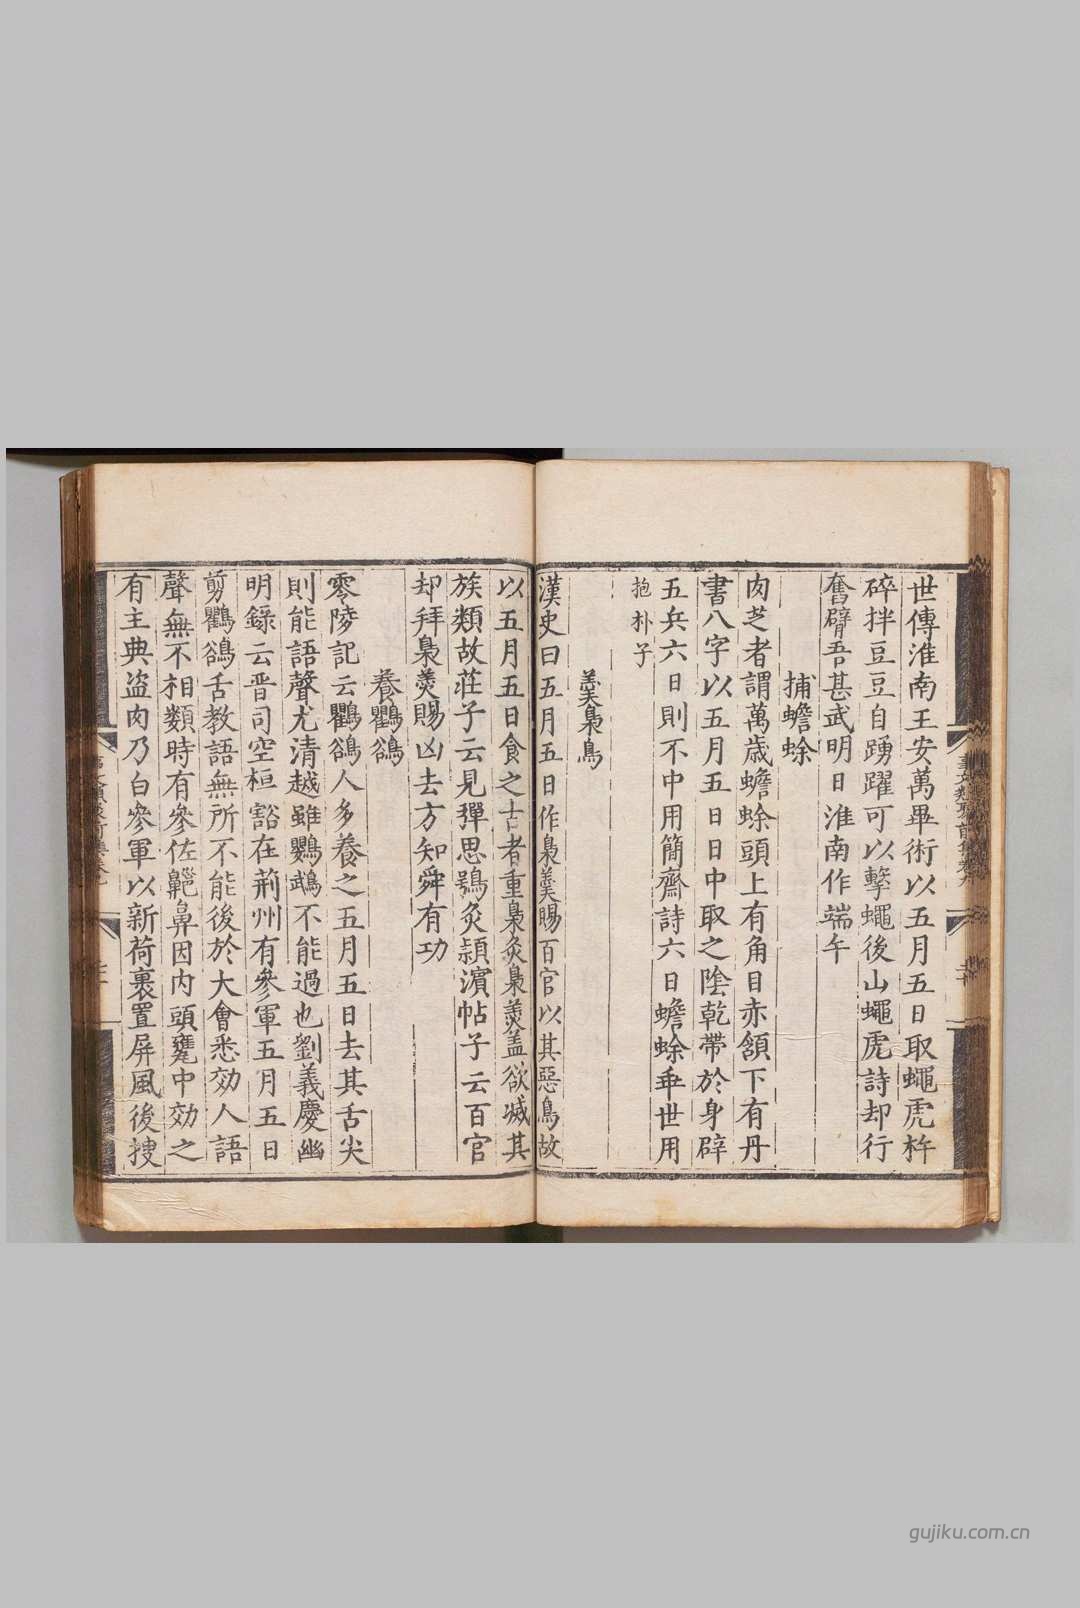 世傳淮南王安萬畢術以五月五日取蠅虎杵
碎拌豆豆自踴躍可以擊蠅後山蠅虎詩却行
奮臂吾甚武明日淮南作端午
捕蟾蜍
肉芝者謂萬歲蟾蜍頭上有角目赤頷下有丹
書八字以五月五日日中取之陰乾帶於身辟
五兵六日則不中用簡齋詩六日蟾蜍乖世用
抱朴子
羹梟鳥
漢史曰五月五日作梟羹賜百官以其惡鳥故
以五月五日食之古者重梟炙梟羹盖欲滅其
族類故莊子云見彈思鴞炙潁濱帖子云百官
却拜梟羹賜凶去方知舜有功
養鸜鵒
零陵記云鸜鵒人多養之五月五日去其舌尖
則能語聲尤清越雖鸚鵡不能過也劉義慶幽
明錄云晋司空桓豁在荊州有參軍五月五日
剪鸜鵒舌教語無所不能後於大會悉効人語
聲無不相類時有參佐齆鼻因内頭甕中効之
有主典盗肉乃白參軍以新荷裏置屏風後搜
事文類聚前集卷九
gujiku.com.cn